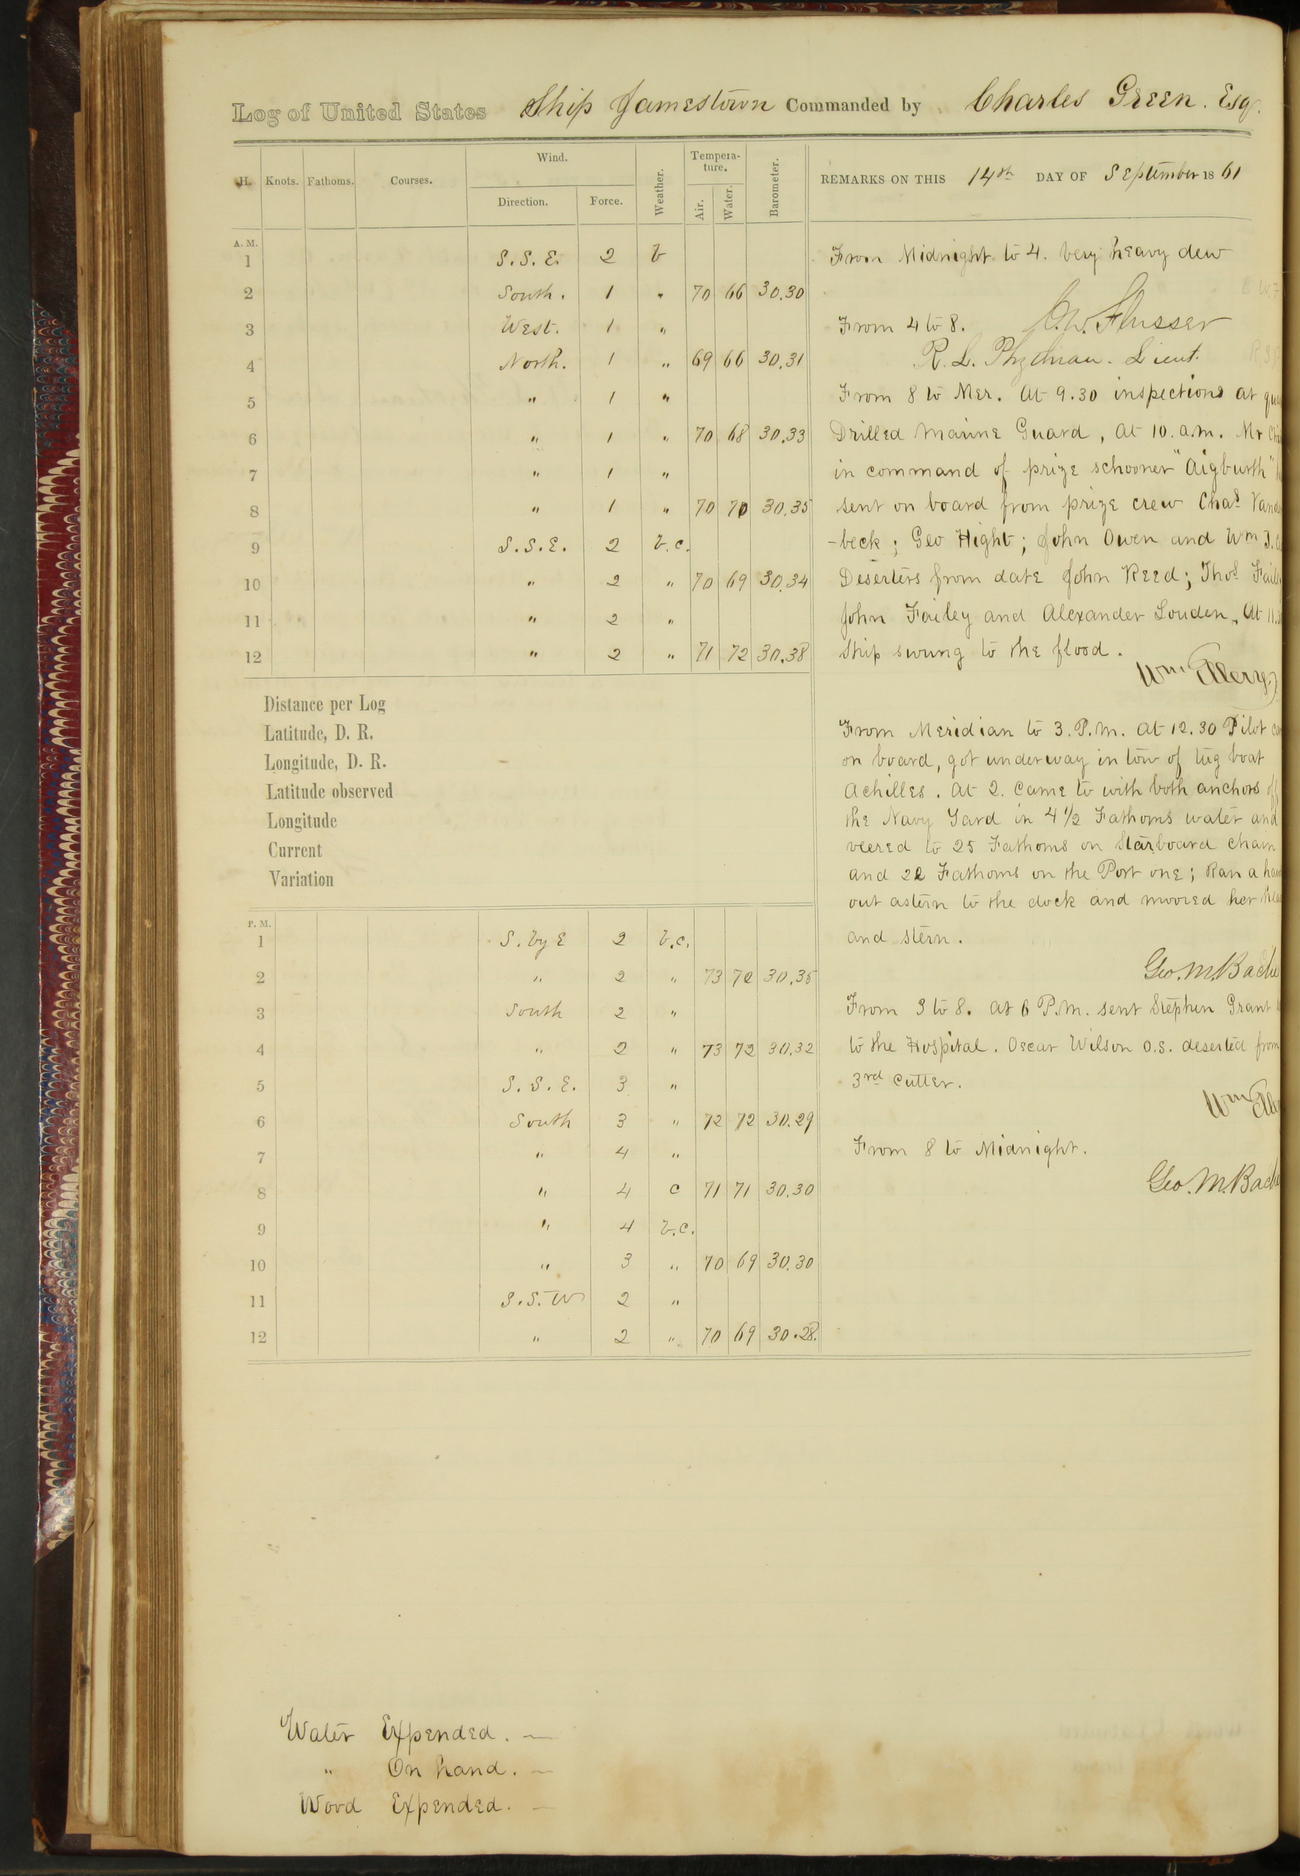 Log of United States Ship Jamestown Commanded by Charles Green. Esq.
H. Knots. Fathoms. Courses. Wind. Direction. Force. Weather. Tempera-ture. Air. Water. Barometer.
REMARKS ON THIS 14th DAY OF September 1861
A. M.
1 S.S.E. 2 b
2 South. 1 " 70 66 30.30
3 West. 1 "
4 North. 1 " 69 66 30.31
5 " 1 "
6 " 1 " 70 68 30.33
7 " 1 "
8 " 1 " 70 70 30.35
9 S.S.E. 2 b.c.
10 " 2 " 70 69 30.34
11 " 2 "
12 " 2 " 71 72 30.38
Distance per Log
Latitude, D. R.
Longitude, D. R.
Latitude observed
Longitude
Current
Variation
P. M.
1 S. by E 2 b.c.
2 " 2 " 73 72 30.35
3 South 2 "
4 " 2 " 73 72 30.32
5 S.S.E. 3 "
6 South 3 " 72 72 30.29
7 " 4 "
8 " 4 c 71 71 30.30
9 " 4 b.c.
10 " 3 " 70 69 30.30
11 S.S.W 2 "
12 " 2 " 70 69 30.28.
From Midnight to 4. very heavy dew
C.W. Flusser
From 4 to 8.
R. L. Phythian. Lieut.
From 8 to Mer. At 9.30 inspections at
Drilled Marine Guard, At 10. a.m. Mr
in command of prize schooner "Aigburth"
sent on board from prize crew Chas. Vander
-beck; Geo Hight; John Owen and Wm
Deserters from date John Reed; Thos.
John Failey and Alexander Louden. At
Ship swung to the flood.
Wm. Ellery
From Meridian to 3. P.m. At 12.30 Pilot
on board, got underway in tow of tug boat
Achilles. At 2. Came to with both anchors
the Navy Yard in 4 1/2 Fathoms water and
veered to 25 Fathoms on Starboard chain
and 22 Fathoms on the Port one; Ran a
out astern to the dock and moored her
and stern.
Geo. M. Bache
From 3 to 8. At 6 P.m. sent Stephen Grant
to the Hospital. Oscar Wilson O.S. deserted from
3rd Cutter.
Wm
From 8 to Midnight.
Geo. M. Bache
Water Expended. —
" On hand. —
Wood Expended. —